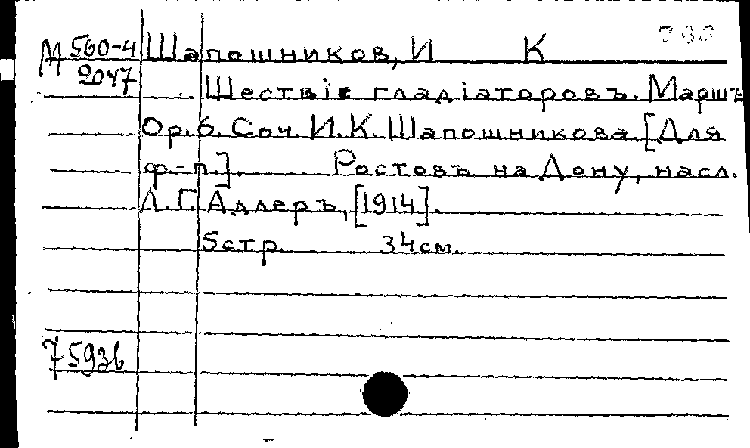 М 560-4 Шапошников, И К
2047 Шествiе гладiаторовъ. Маршъ
Ор. 6. Соч. И. К. Шапошникова. [Для
ф.-п.]. Ростовъ на Дону, насл.
Л. Г. Адлеръ, [1914].
5 стр. 34 см.